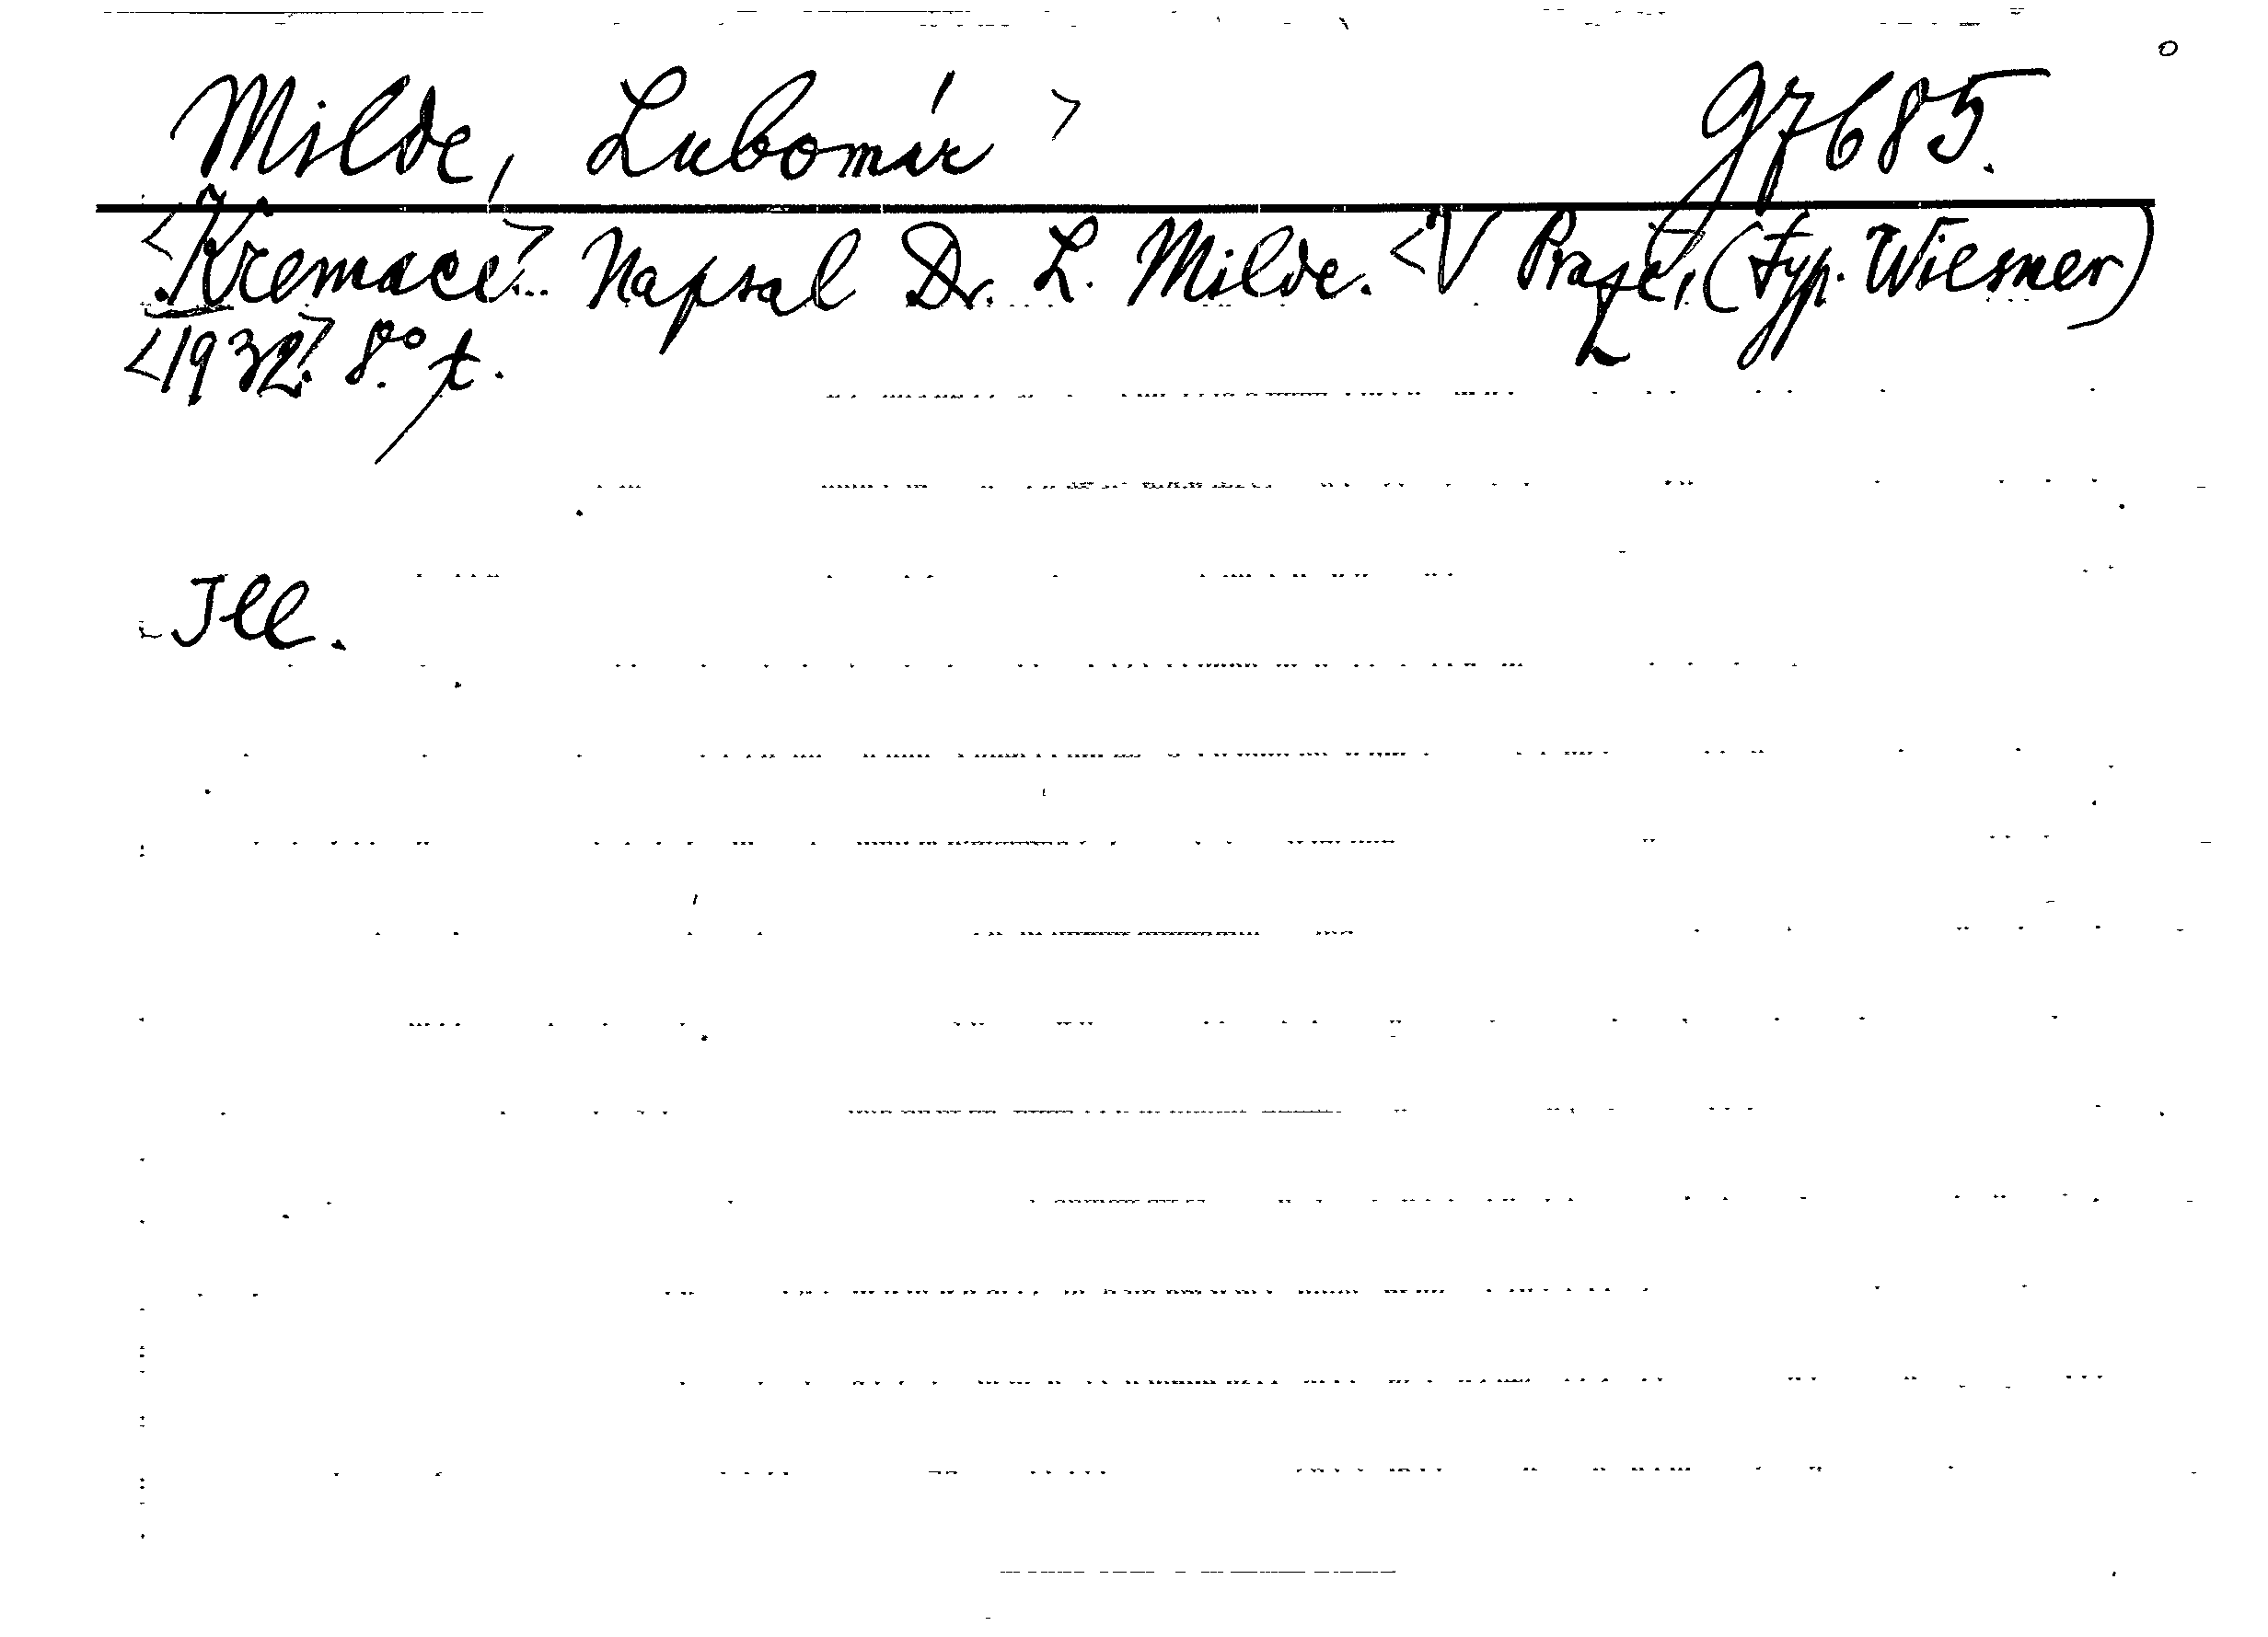 Milde, Lubomír > 97685.
<Kremace.> Napsal Dr. L. Milde. <V Praze, (Typ. Wiesner)
<1932.> 8.° t.
Ill.